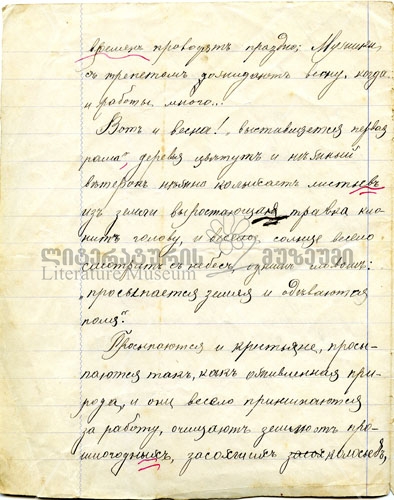 временъ проводятъ праздно; Мужики
съ трепетомъ дожидаютъ весну, когда
и работы много...
Вотъ и весна! „выставляется первая
рама“, деревья цвѣтутъ и нѣжный
вѣтерокъ нѣжно колыхаетъ листьевъ
изъ земли выростающая травка кло-
нитъ голову, и солнце весело
смотритъ съ небесъ, однимъ словомъ:
ლიტერატურის მუზეუმი
Literature Museum
„просыпается земля и одѣваются
поля“.
Просыпаются и крестьяне, просы-
паются такъ, какъ оживленная при-
рода, и они весело принимаются
за работу, очищаютъ земли отъ про-
шлогоднихъ, засохшихъ колосьевъ,